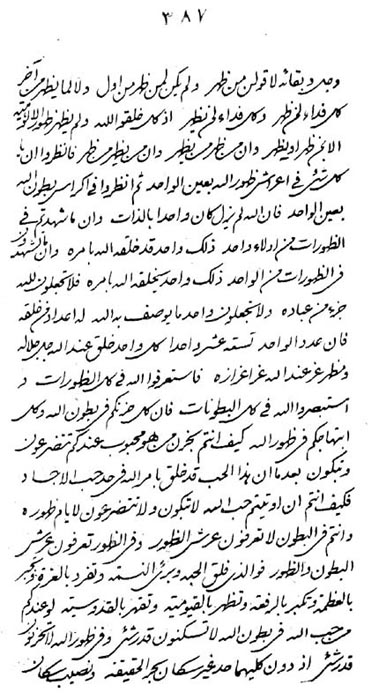 ٣٨٧
وحق وبقائه لا قولن من ظهر ولم يكن لمن ظهر من اول ولا لما يظهر من آخر
كل فداء لمن ظهر وكل فداء لمن يظهر اذ كل خلقوا الله ولم يظهر ظهور الالوهية
الا بمن ظهر او يظهر وان من ظهر من يظهر وان من يظهر من ظهر فانظروا ان يا
كل شئ في اعراش ظهور الله بعين الواحد ثم انظروا في اكراسي بطون الله
بعين الواحد فان الله لم يزل كان واحدا بالذات وان ما شهدتم في
الظهورات من ادلاء واحد ذلك واحد قد خلقه الله بامره وان ما تشهدون
في الظهورات من الواحد ذلك واحد يخلقه الله بامره فلا تجعلون لله
جزء من عباده ولا تجعلون واحد ما يوصف به الله له اعداد في خلقه
فان عدد الواحد تسعة عشر واحدا كل واحد خلق عند الله جل جلاله
ومظهر عز عند الله عز اعزازه فاستعرفوا الله في كل الظهورات و
استبصروا الله في كل البطونات فان كل حزنكم في بطون الله وكل
ابتهاجكم في ظهور الله كيف انتم بحزن من هو محبوب عندكم تتضرعون
وتبكون بعد ما ان هذا الحب قد خلق بامر الله في حد حب الاجساد
فكيف انتم ان اوتيتم حب الله لا تبكون ولا تتضرعون لايام ظهوره
وانتم في البطون لا تعرفون عرش الظهور وفي الظهور تعرفون عرش
البطون والظهور فوالذي فلق الحبه وبرئ النسمه وتفرد بالعزة وتجبر
بالعظمة وتكبر بالرفعة وتظهر بالقيومية وتقهر بالقدوسية لو عندكم
من حب الله في بطون الله لا تسكنون قدر شئ وفي ظهور الله لا تحزنون
قدر شئ اذ دون كليهما حد غير سكان بحر الحقيقه ونصيب سكان